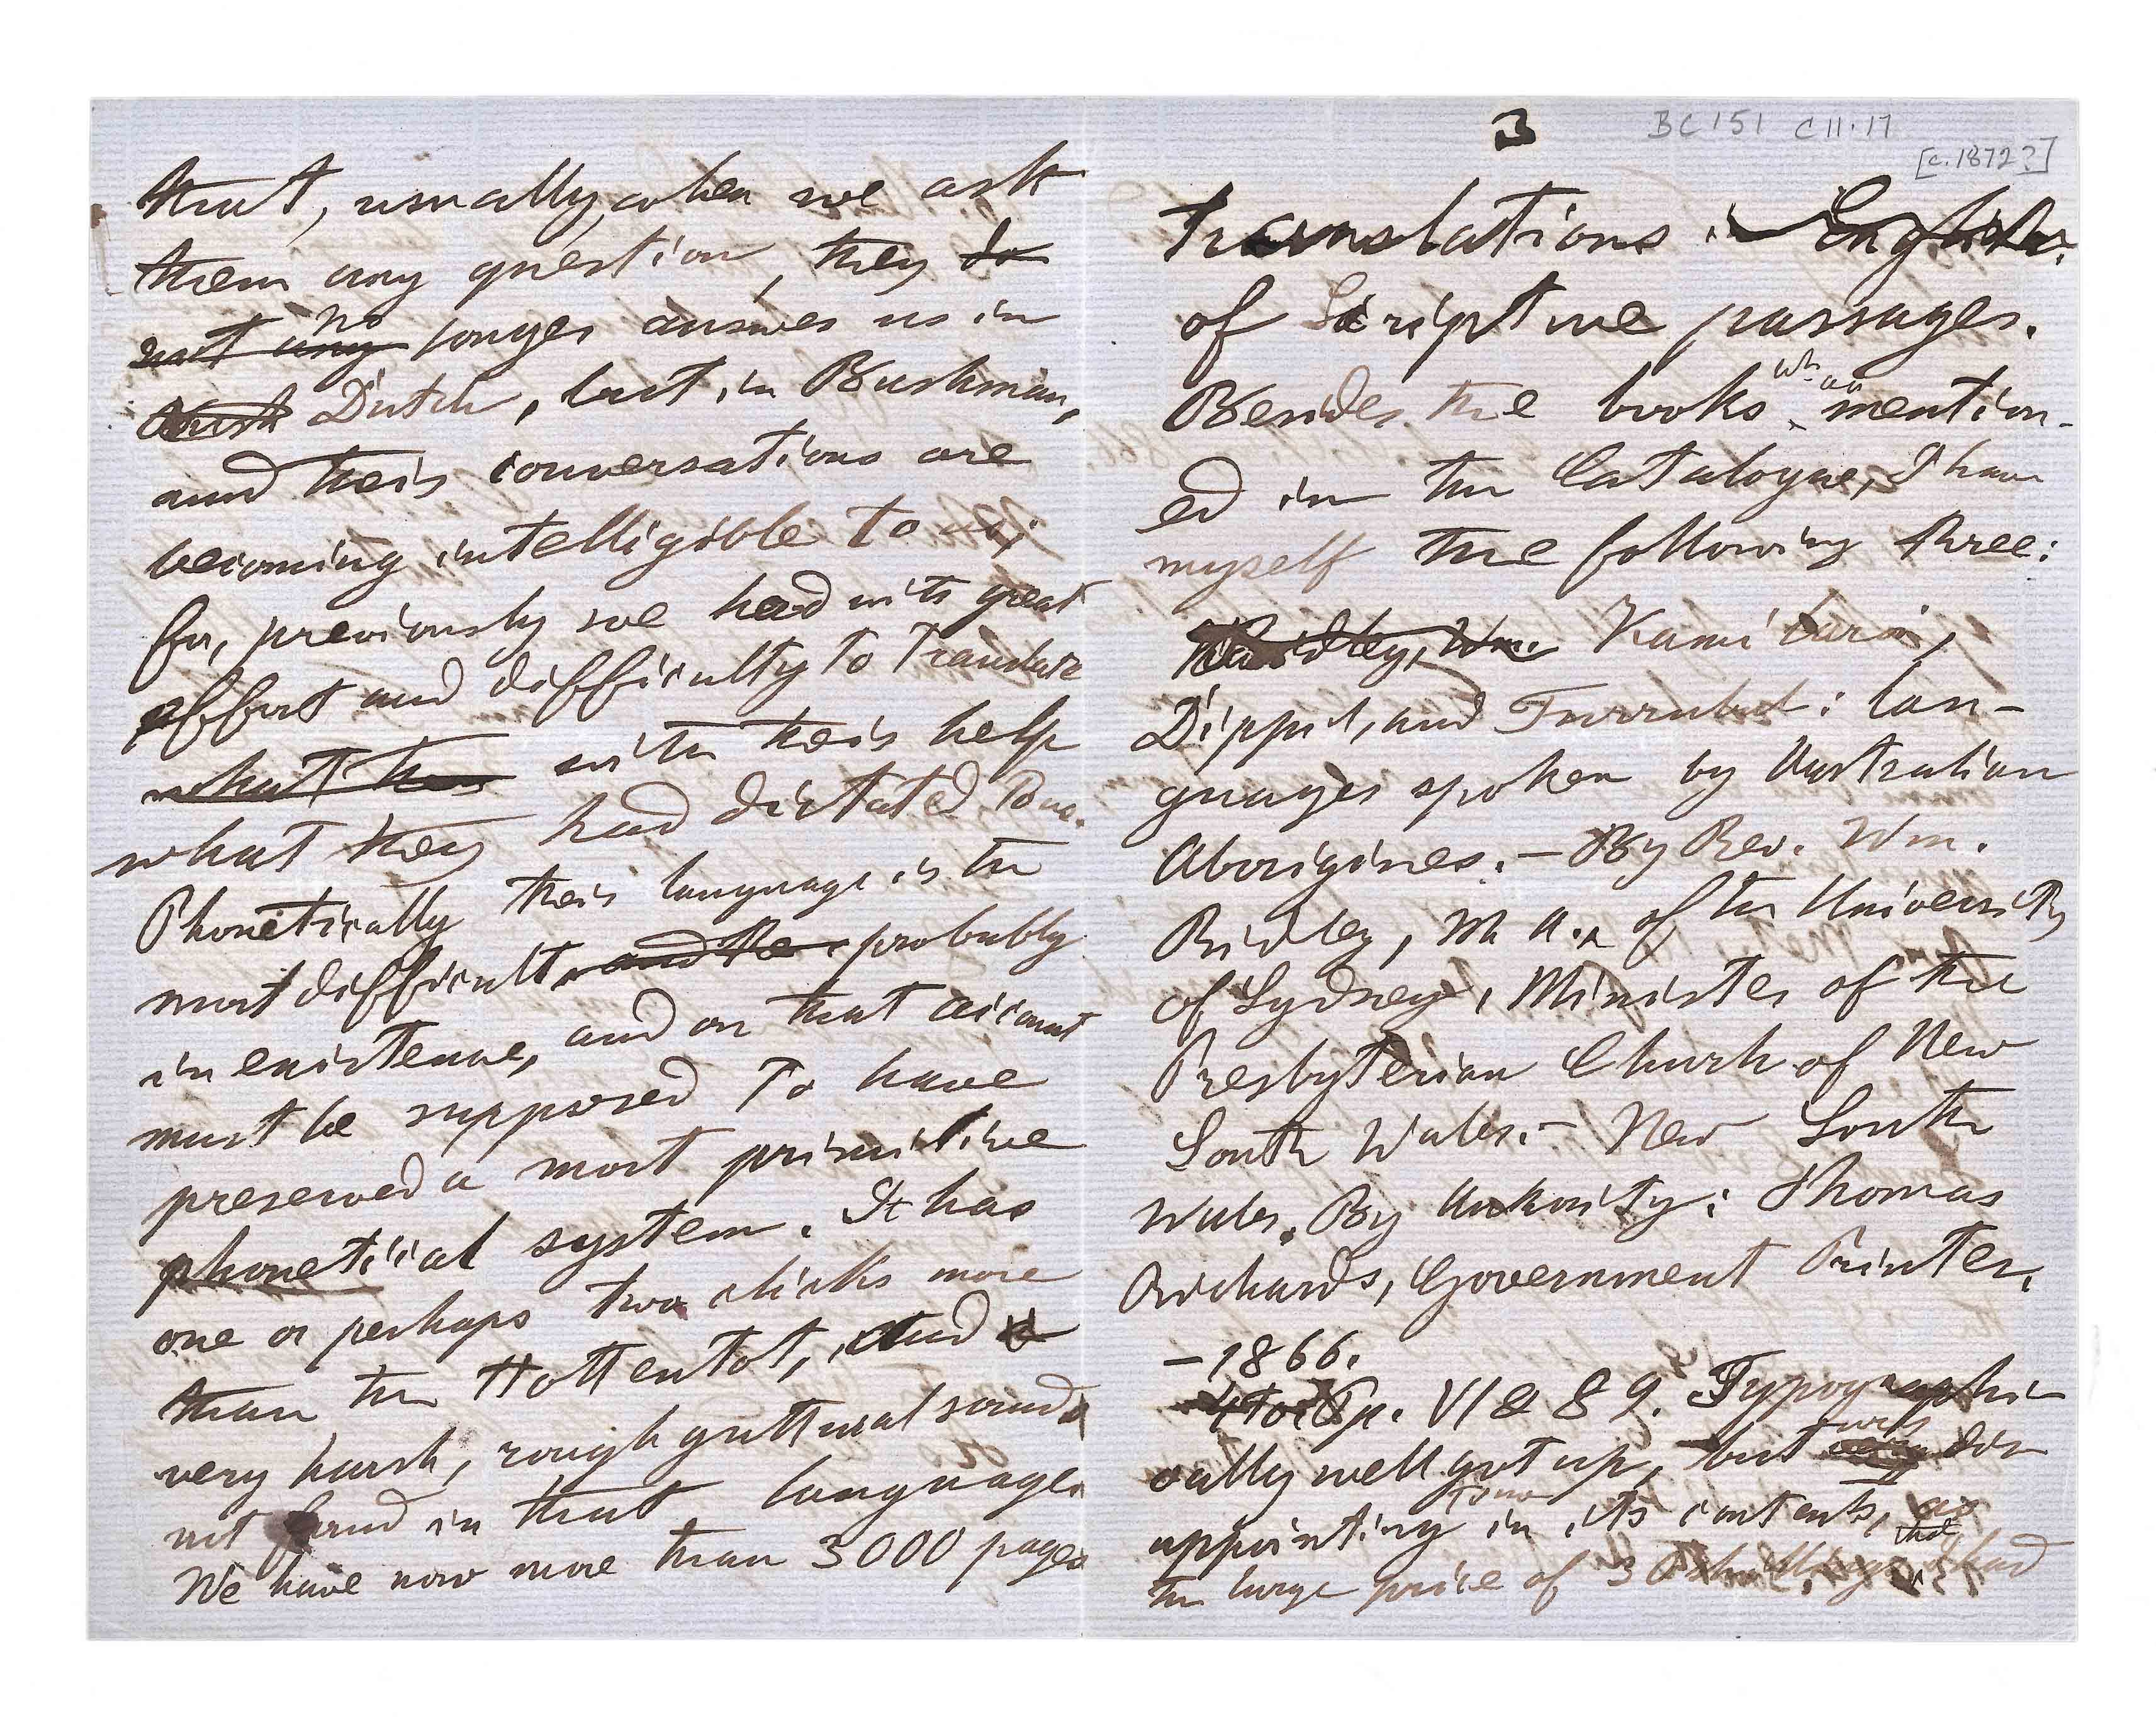 that, usually, when we ask
them any question, they do
not any no longer answer us in
Dutch, but in Bushman,
and their conversations are
becoming intelligible to us;
for, previously we had with great
effort and difficulty to translate
what they with their help
what they had dictated to us.
Phonetically their language is the
most difficult, and the probably
in existence, and on that account
must be supposed to have
preserved a most primitive
phonetical system. It has
one or perhaps two clicks more
than the Hottentot, and
very harsh, rough guttural sounds
not found in that language.
We have now more than 3000 pages
3
BC 151 C11.17
[c.1872?]
translations in English.
of Scripture passages.
Besides the books mention-
ed in the Catalogue, I have
myself the following three:
Ridley, Wm. Kamilaroi,
Dippil, and Turrubul: lan-
guages spoken by Australian
Aborigines. – By Rev. Wm.
Ridley, M A., of the University
of Sydney, Minister of the
Presbyterian Church of New
South Wales. – New South
Wales. By Authority: Thomas
Richards, Government Printer.
– 1866.
4to. Pp. VI & 89. Typographi-
cally well got up, but very dis
appointing in its contents, as
the large price of 30 shillings had